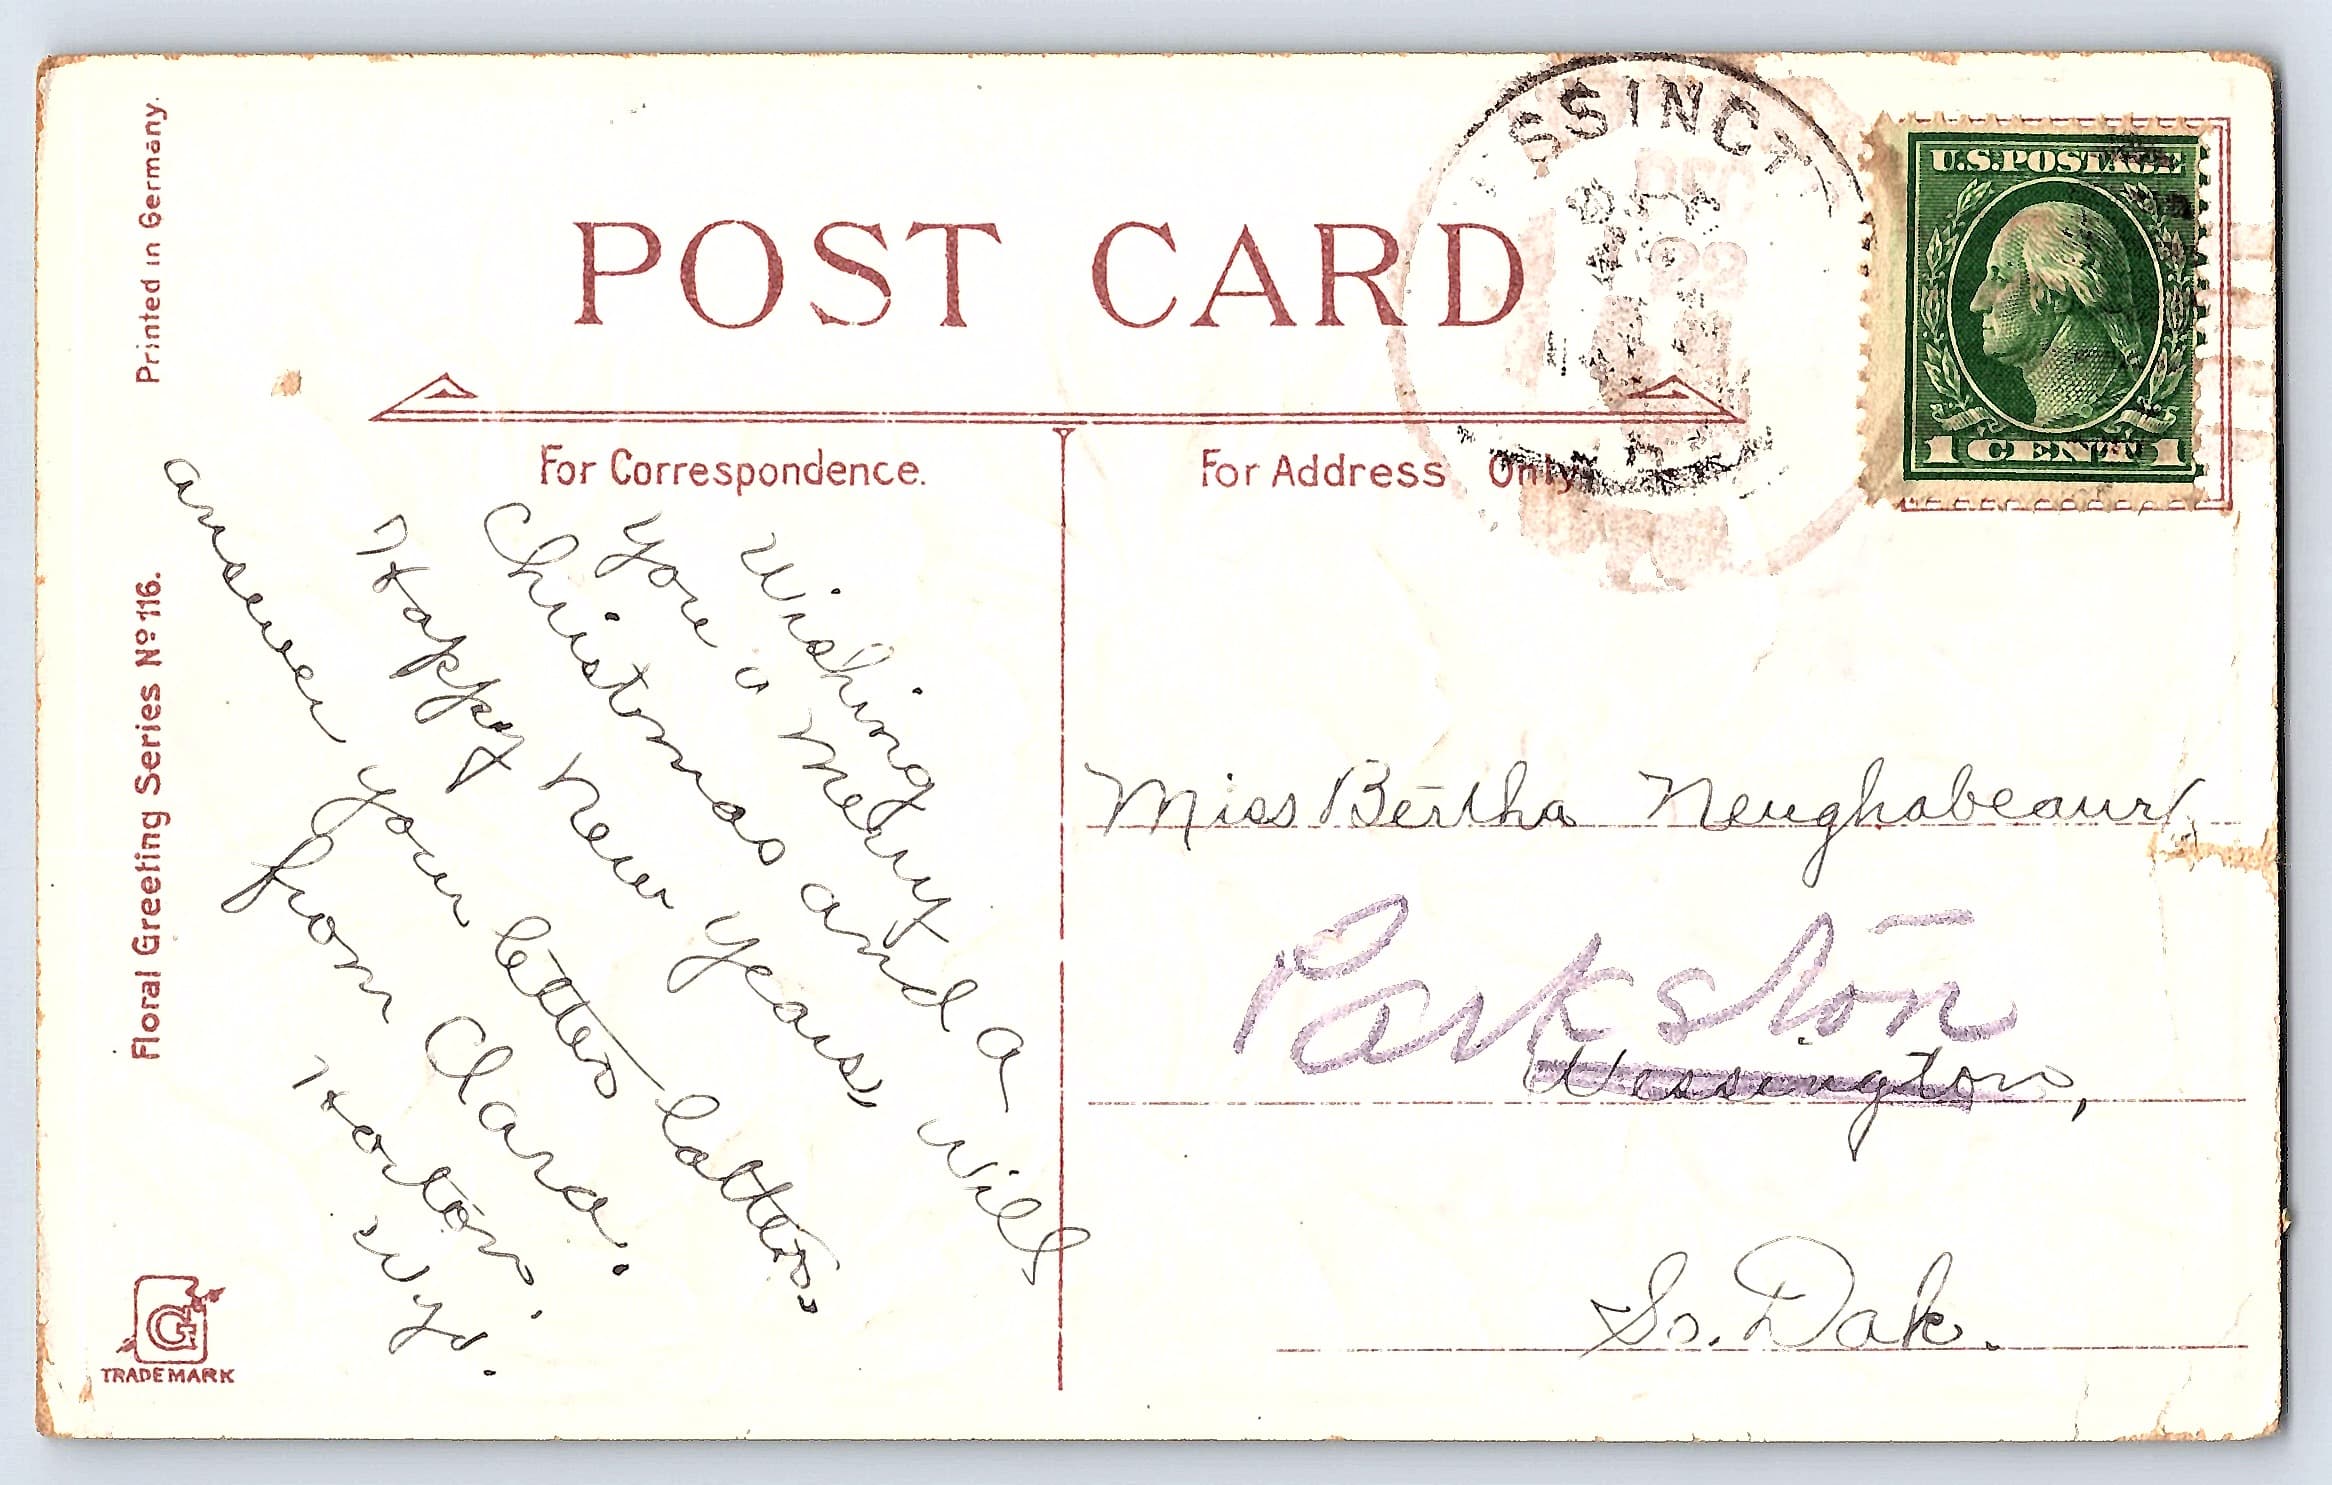 Printed in Germany.
Floral Greeting Series Nº 116.
TRADEMARK
G
POST CARD
For Correspondence.
For Address Only.
U.S. POSTAGE
1 CENT 1
SSINGT
DEC
22
Wishing
you a Merry
Christmas and a
Happy New Years, will
answer your letter latter.
from Clara.
Horton.
Wyo.
Miss Bertha Neughabeaur
Parkston
Wessington,
So. Dak.